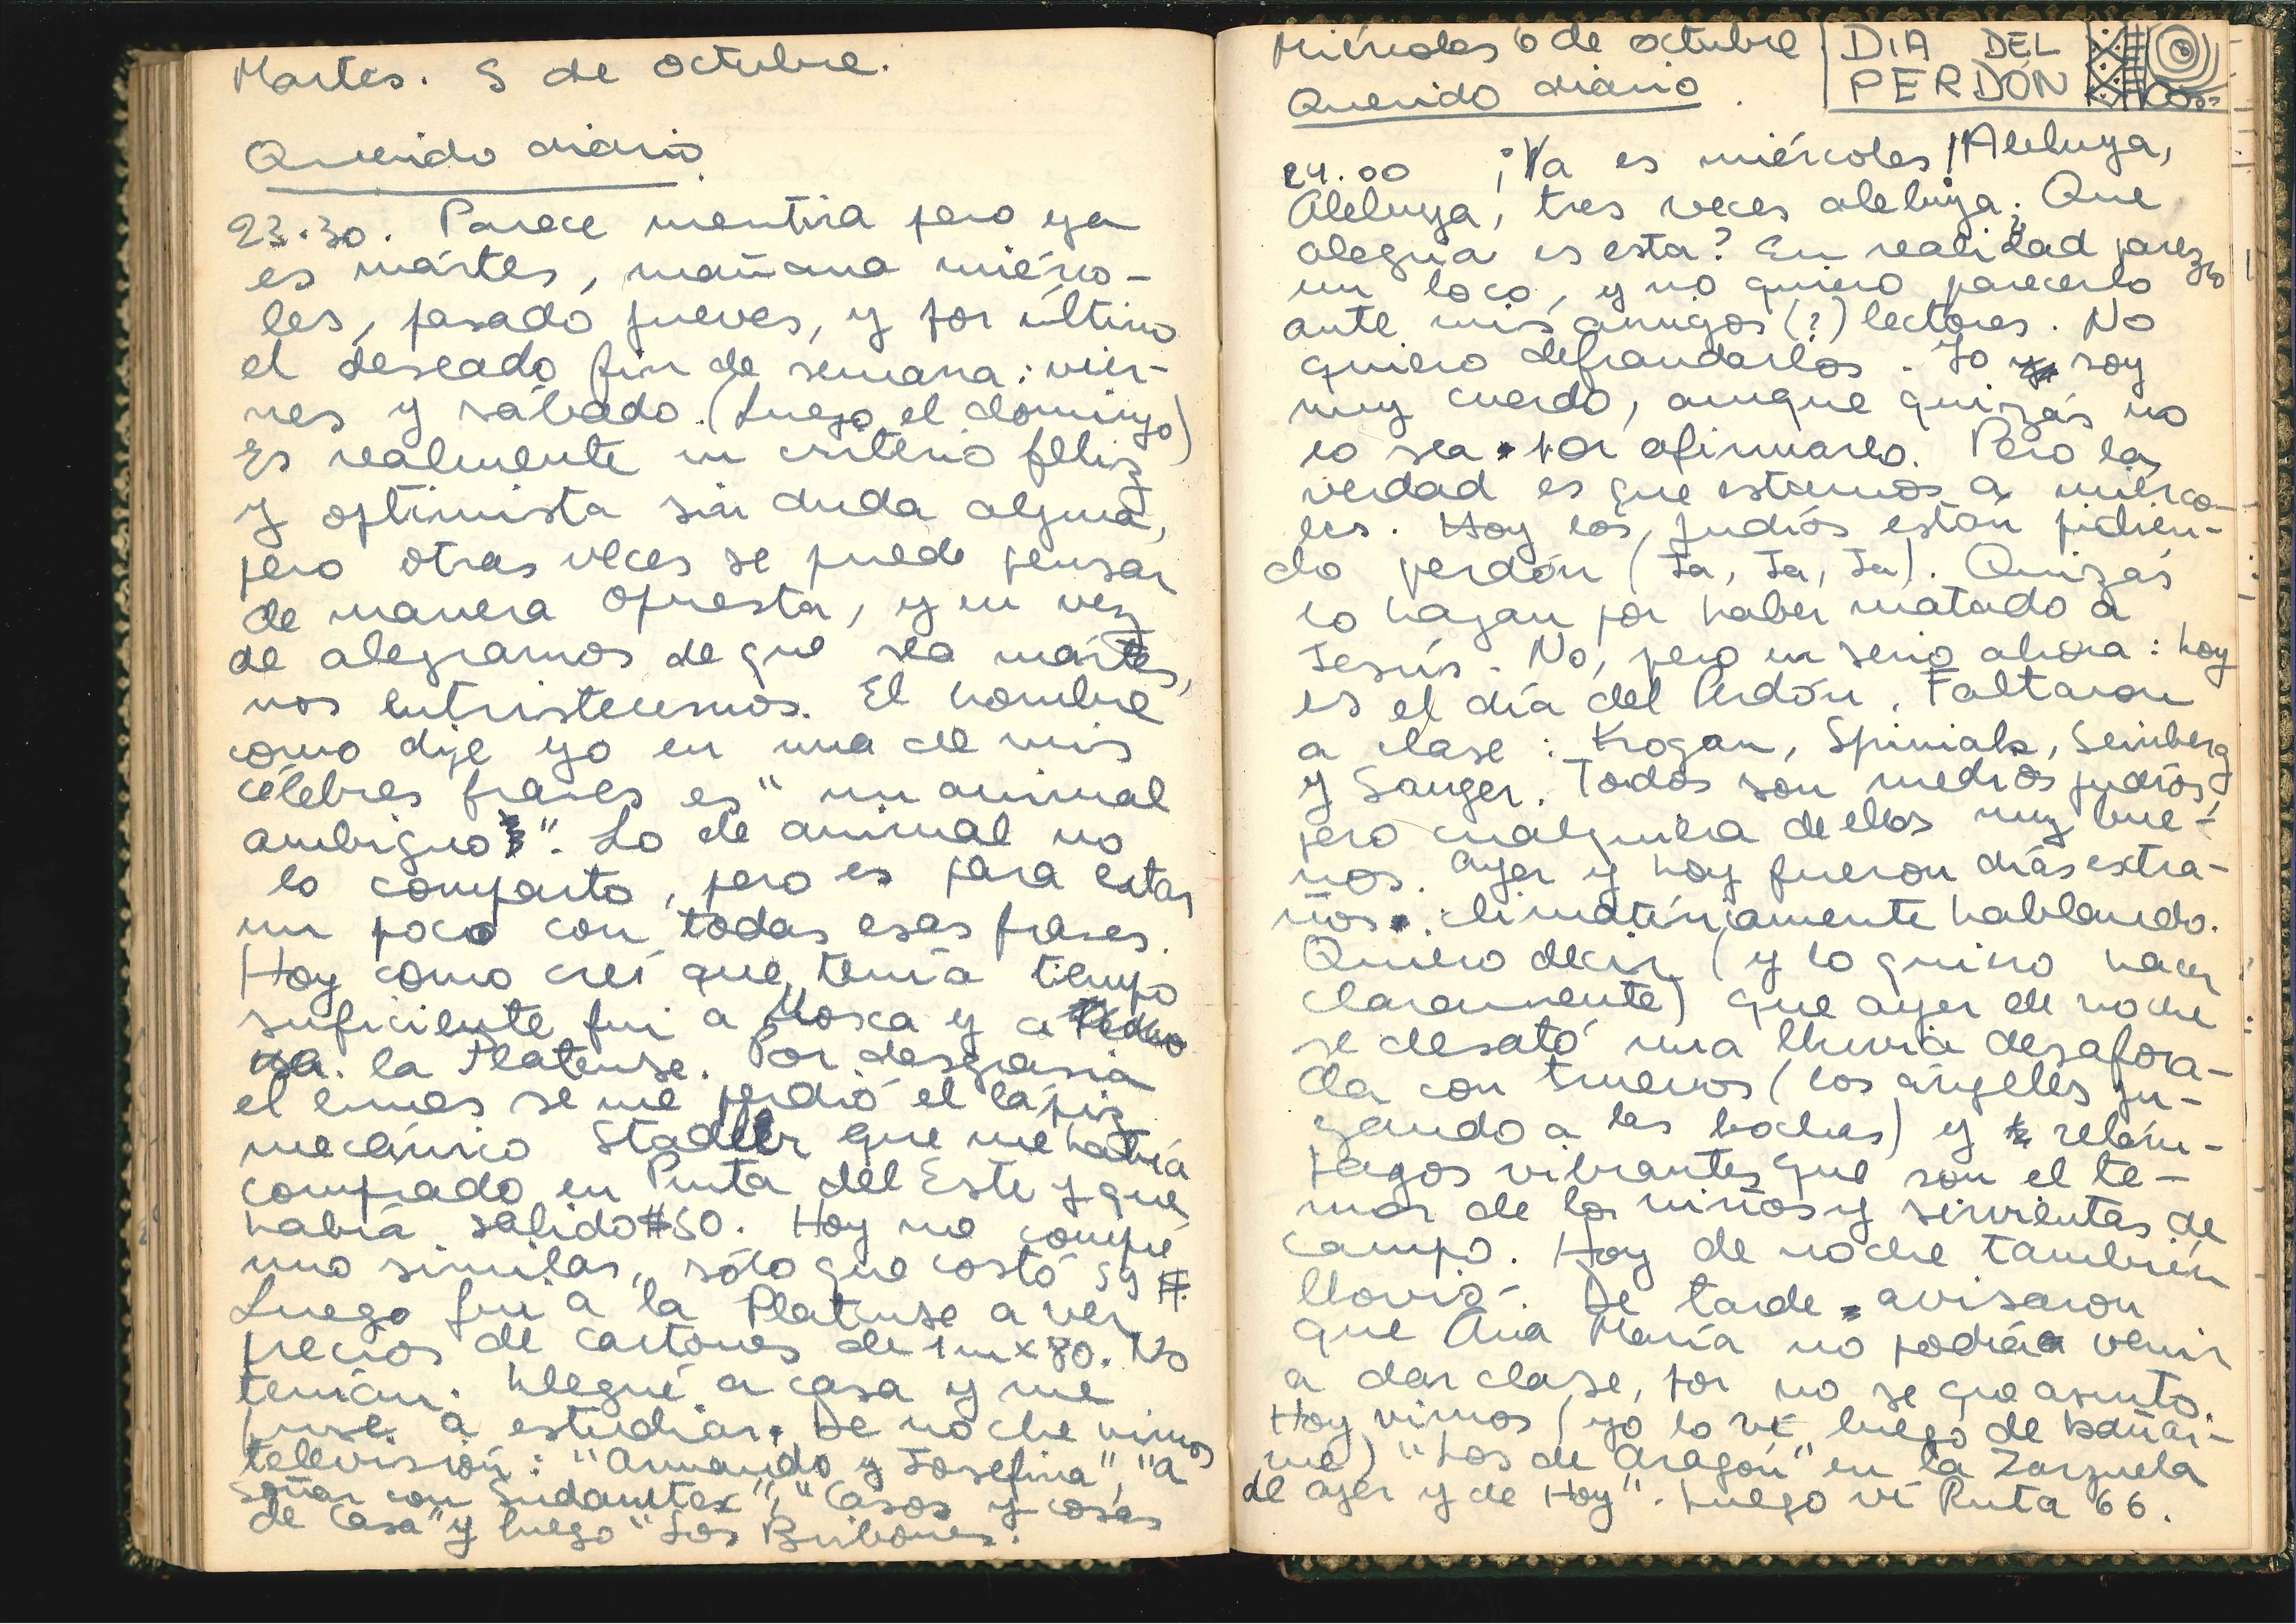 Martes. 5 de octubre.
Querido diario
23.30. Parece mentira pero ya
es mártes, mañana miérco-
les, pasado jueves, y por último
el deseado fin de semana: vier-
nes y sábado. (Luego el domingo)
Es realmente un criterio feliz
y optimista sin duda alguna,
pero otras veces se puede pensar
de manera opuesta, y en vez
de alegrarnos de que sea mártes,
nos entristecemos. El hombre
como dije yo en una de mis
célebres frases es "un animal
ambiguo". Lo de animal no
lo comparto, pero es para estar
un poco con todas esas frases.
Hoy como creí que tenía tiempo
suficiente fui a Mosca y a
la Platense. Por desgracia
el lunes se me perdió el lápiz
mecánico Stadler que me había
comprado en Punta del Este y que
había salido $50. Hoy me compré
uno similar, sólo que costó 59 $.
Luego fui a la Platense a ver
precios de cartones de 1m x 80. No
tenían. Llegué a casa y me
puse a estudiar. De noche vimos
televisión: "Armando y Josefina", "A
soñar con Sudamtex", "Casos y cosas
de Casa" y luego "Los Bribones.
Miércoles 6 de octubre
DIA DEL
PERDÓN
Querido diario.
24.00 ¡Ya es miércoles! Aleluya,
Aleluya, tres veces aleluya; Que
alegría es esta? En realidad parezco
un loco, y no quiero parecerlo
ante mis amigos (?) lectores. No
quiero defraudarlos. Yo soy
muy cuerdo, aunque quizás no
lo sea por afirmarlo. Pero la
verdad es que estamos a miérco-
les. Hoy los judíos están pidien-
do perdón (Ja, Ja, Ja). Quizás
lo hagan por haber matado a
Jesús. No, pero en serio ahora: hoy
es el día del Perdón. Faltaron
a clase: Krogan, Spiniak, Seinberg
y Sanger. Todos son medios judíos,
pero cualquiera de ellos muy bue-
nos. Ayer y hoy fueron días extra-
ños. climatéricamente hablando.
Quiero decir (y lo quiero hacer
claramente) que ayer de noche
se desató una lluvia desafora-
da con truenos (los ángeles ju-
gando a las bochas) y relám-
pagos vibrantes que son el te-
mor de los niños y sirvientas de
campo. Hoy de noche también
llovió. De tarde avisaron
que Ana María no podría venir
a dar clase, por no se que asunto.
Hoy vimos (yo lo vi luego de bañar-
me) "Los de Aragón" en la Zarzuela
de ayer y de Hoy". Luego vi Ruta 66.